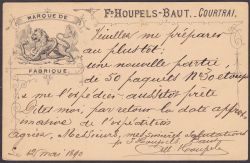 MARQUE DE
FABRIQUE
Fs HOUPELS-BAUT. COURTRAI.
Veuillez me préparer
au plus tôt;
une nouvelle partie,
de 50 paquets No 30
à me l'expédier aussitôt prête
Dites moi, par retour la date approxi
mative de l'expédition
Agréez, Messieurs, mes salutations
12 mai 1890